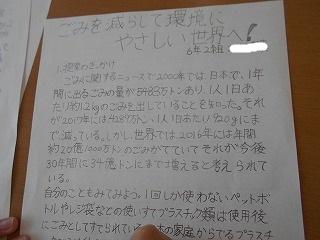 ごみを減らして環境に
やさしい世界へ!
6年2組
1.提案のきっかけ
ごみに関するニュースで2000年では、日本で、1年
間に出るごみの量が5483万トンあり、1人1日あ
たり約1.2kgのごみを出していることを知った。それ
が2017年には4289万トン、1人1日あたり920gにま
で減っている。しかし世界では2016年には年間
約20億1000万トンのごみがでていてそれが今後
30年間に34億トンにまでは増えると考えられて
いる。
自分のこともみてみよう。1回しか使わないペットボ
トルやレジ袋などの使いすてプラスチック類は使用後
にごみとしてすてられている。 の家庭からでるプラス